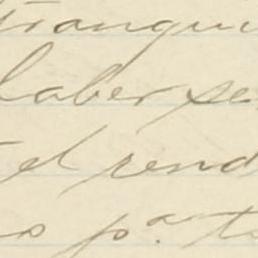 tranqui
laber se
d rend
s pª. t